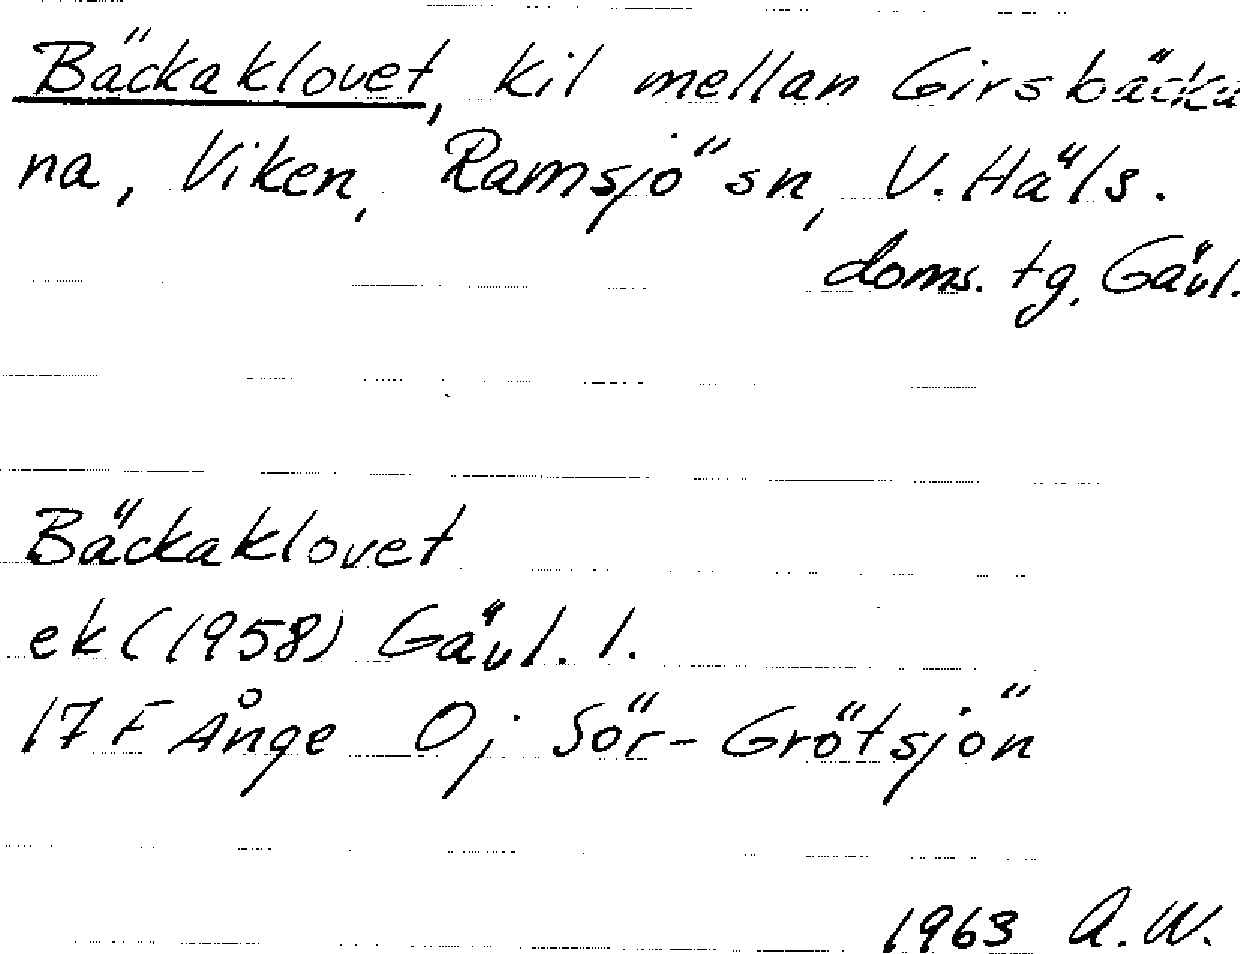 Bäckaklovet, kil mellan Girsbäcka
na, Viken, Ramsjö sn, V. Häls.
doms. tg. Gävl.
Bäckaklovet
ek (1958) Gävl. l.
17 F Ånge Oj Sör-Grötsjön
1963 A.W.